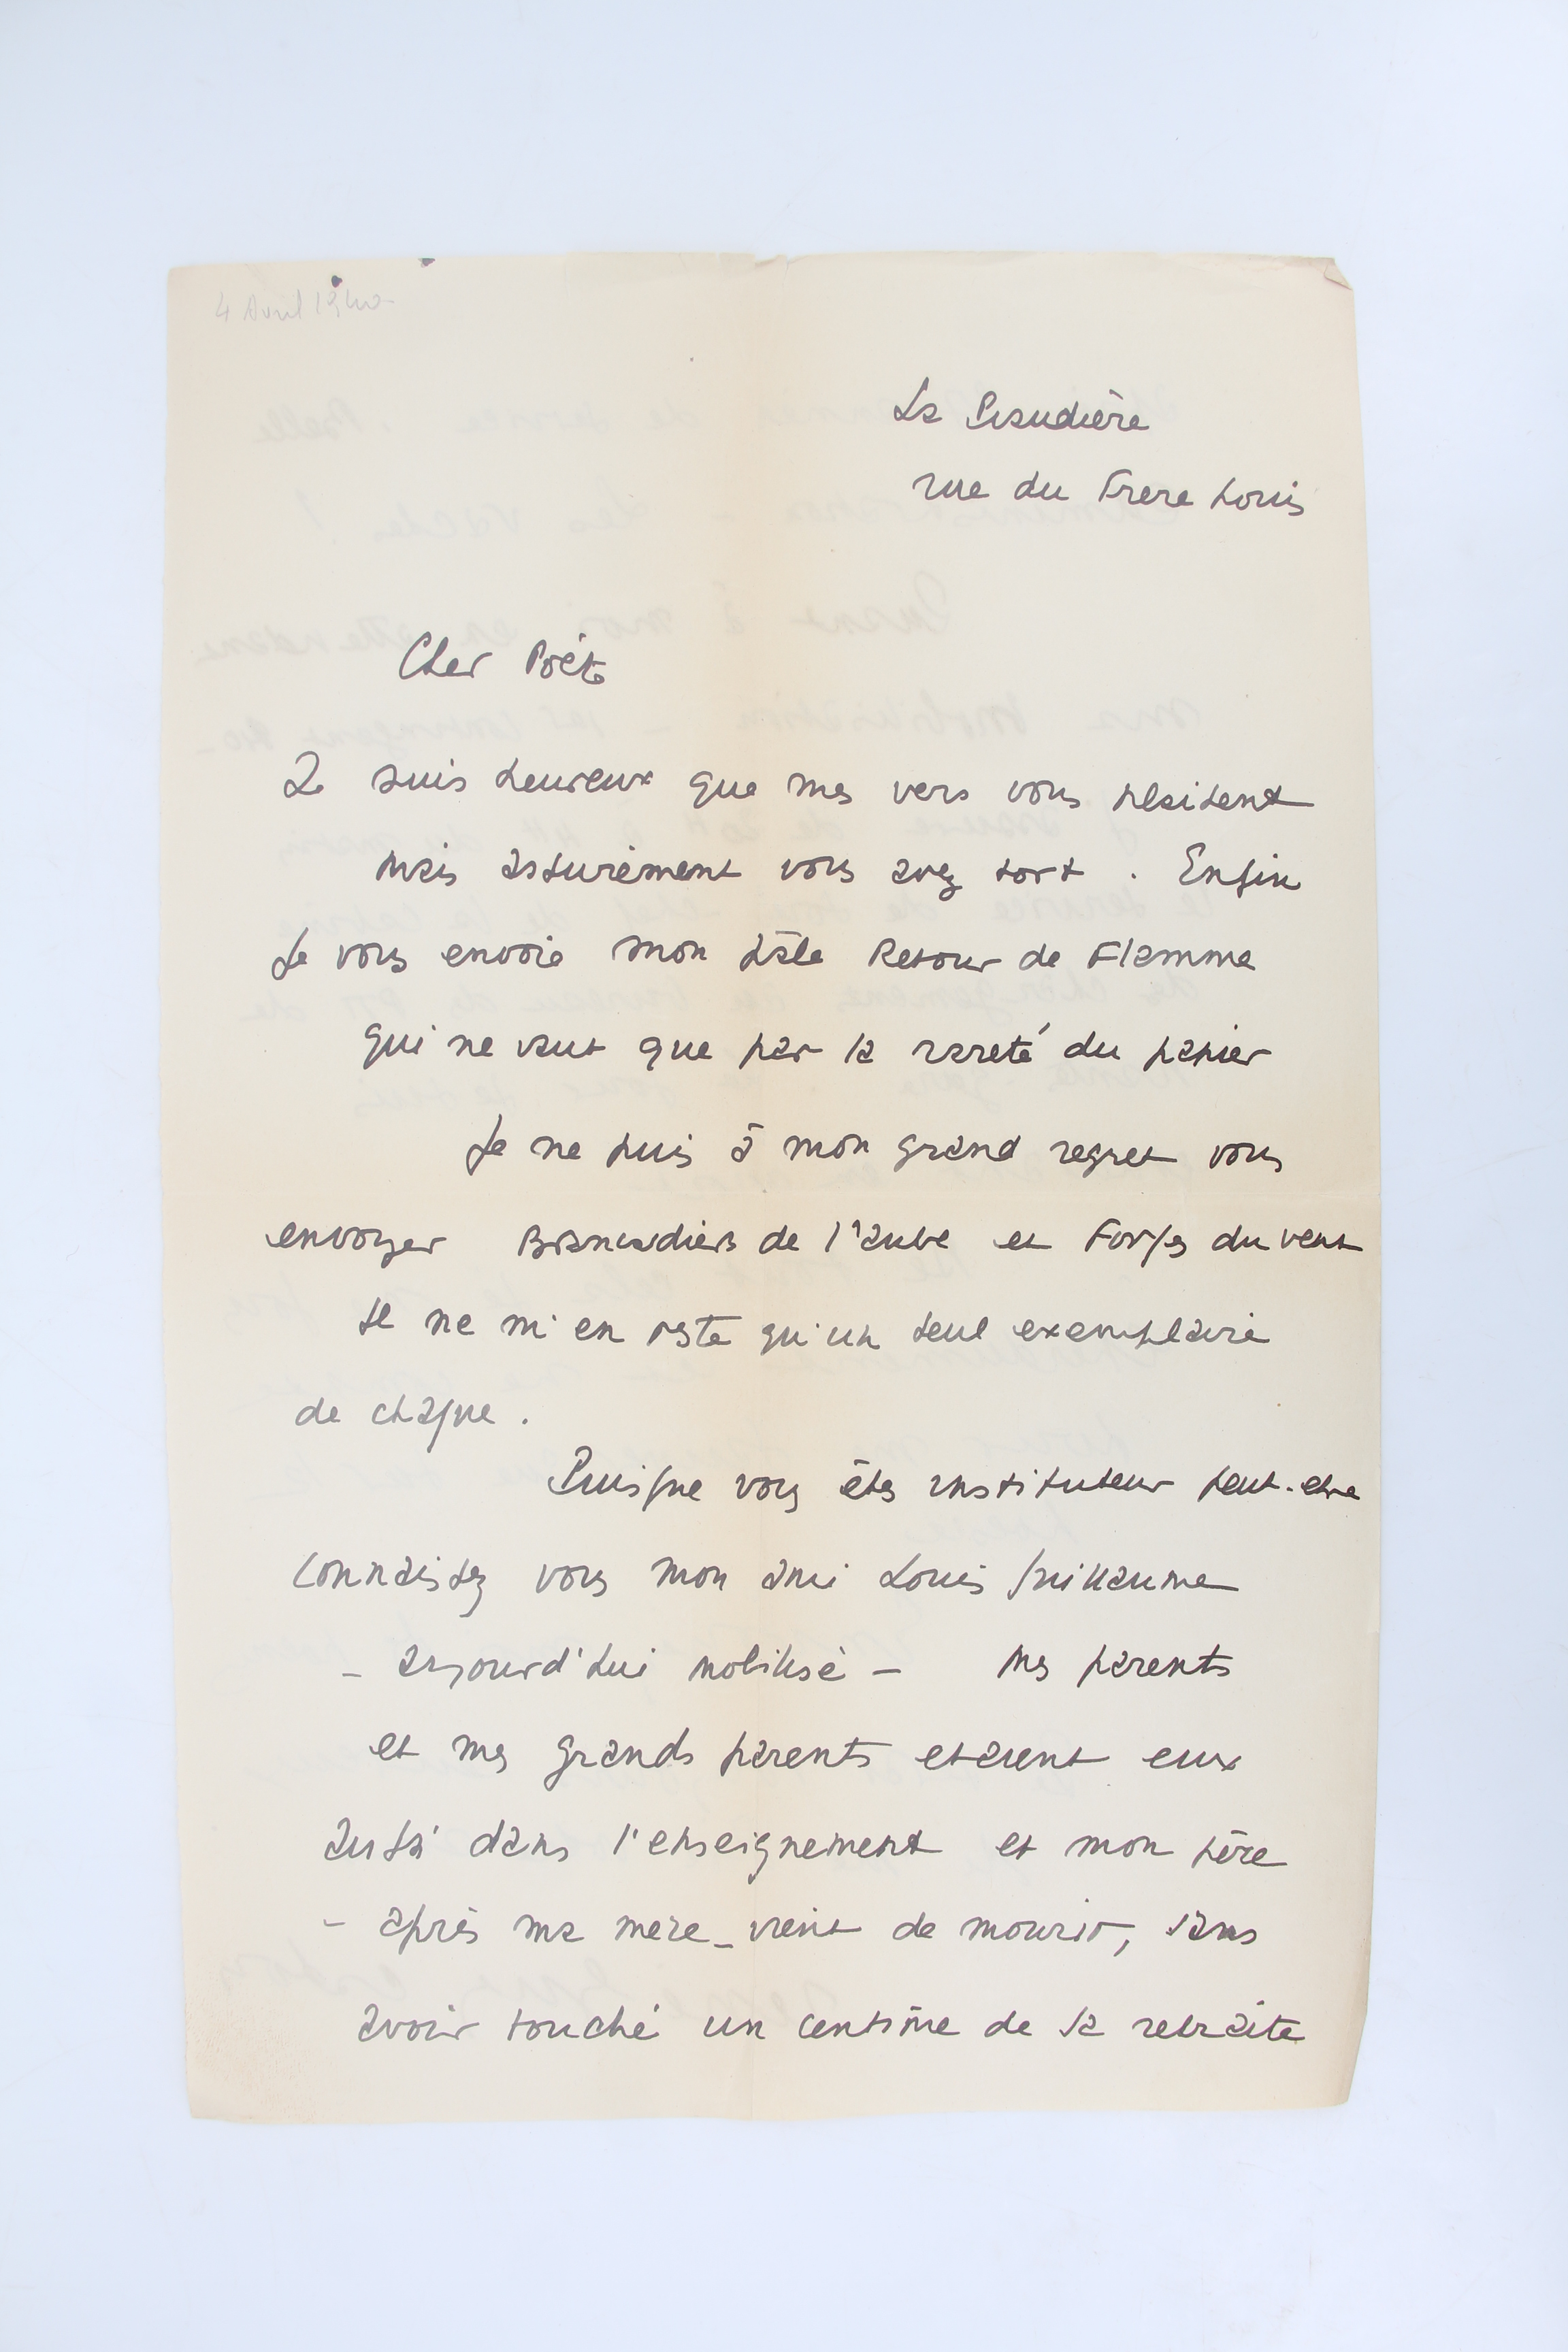 4 Avril 1940
La Pixaudière
rue du Frere Louis
Cher Poète
Je suis heureux que mes vers vous plaisent
mais assurément vous avez tort . Enfin
Je vous envoie mon pâle Retour de Flamme
qui ne vaut que par la rareté du papier
Je ne puis à mon grand regret vous
envoyer Brancardiers de l'aube et Forges du vent
Il ne m'en reste qu'un seul exemplaire
de chaque .
Puisque vous êtes instituteur peut-etre
connaissez vous mon ami Louis Guillaume
- aujourd'hui mobilisé - Mes parents
et mes grands parents etaient eux
aussi dans l'enseignement et mon père
- après ma mere - vient de mourir, sans
avoir touché un centime de sa retraite